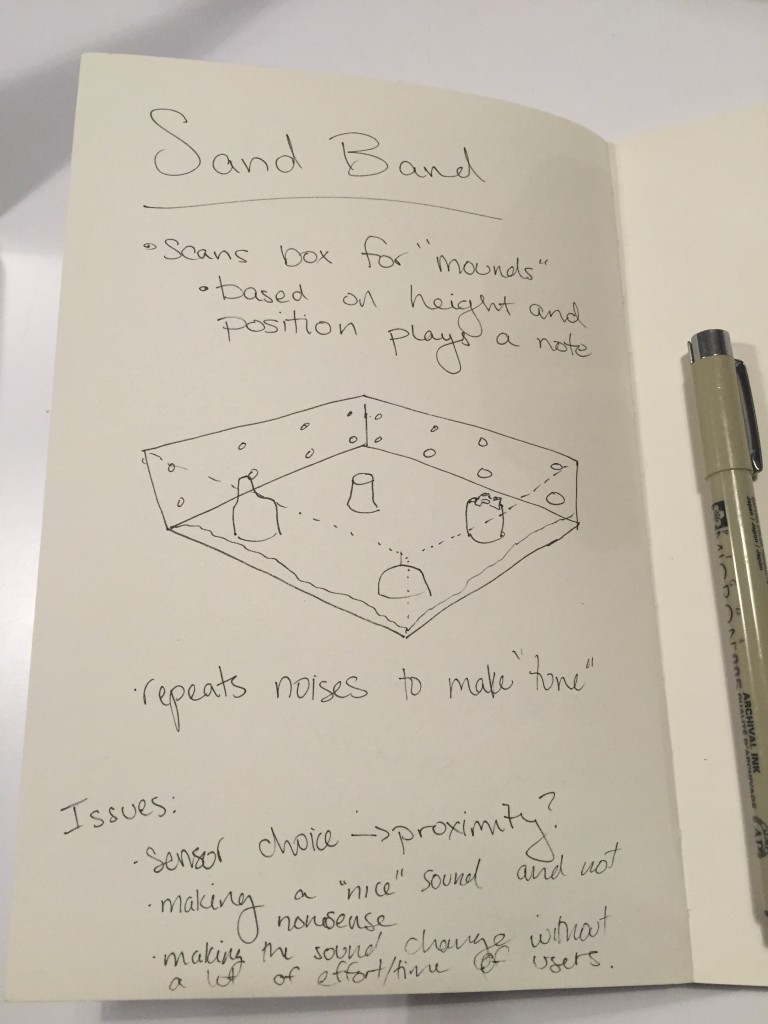 Sand Band
• Scans box for "mounds"
• based on height and
position plays a note
• repeats noises to make "tone"
Issues:
• Sensor choice → proximity?
• making a "nice" sound and not
nonsense
• making the sound change without
a lot of effort/time of users.
ARCHIVAL INK